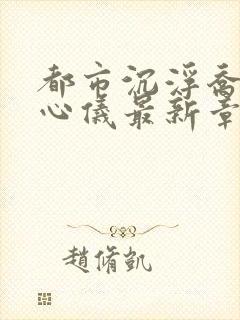 都市沉浮喬
心儀最新章
趙脩凱